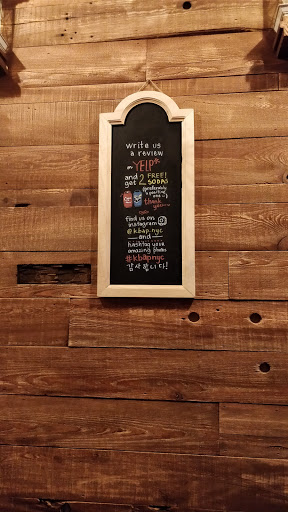 write us
a review
on YELP*
and get 2 FREE! SODAS
(preferably a positive one :)
thank you~
find us on
instagram
@kbap.nyc
— and —
hashtag your
amazing photos
#kbapnyc
감사합니다!